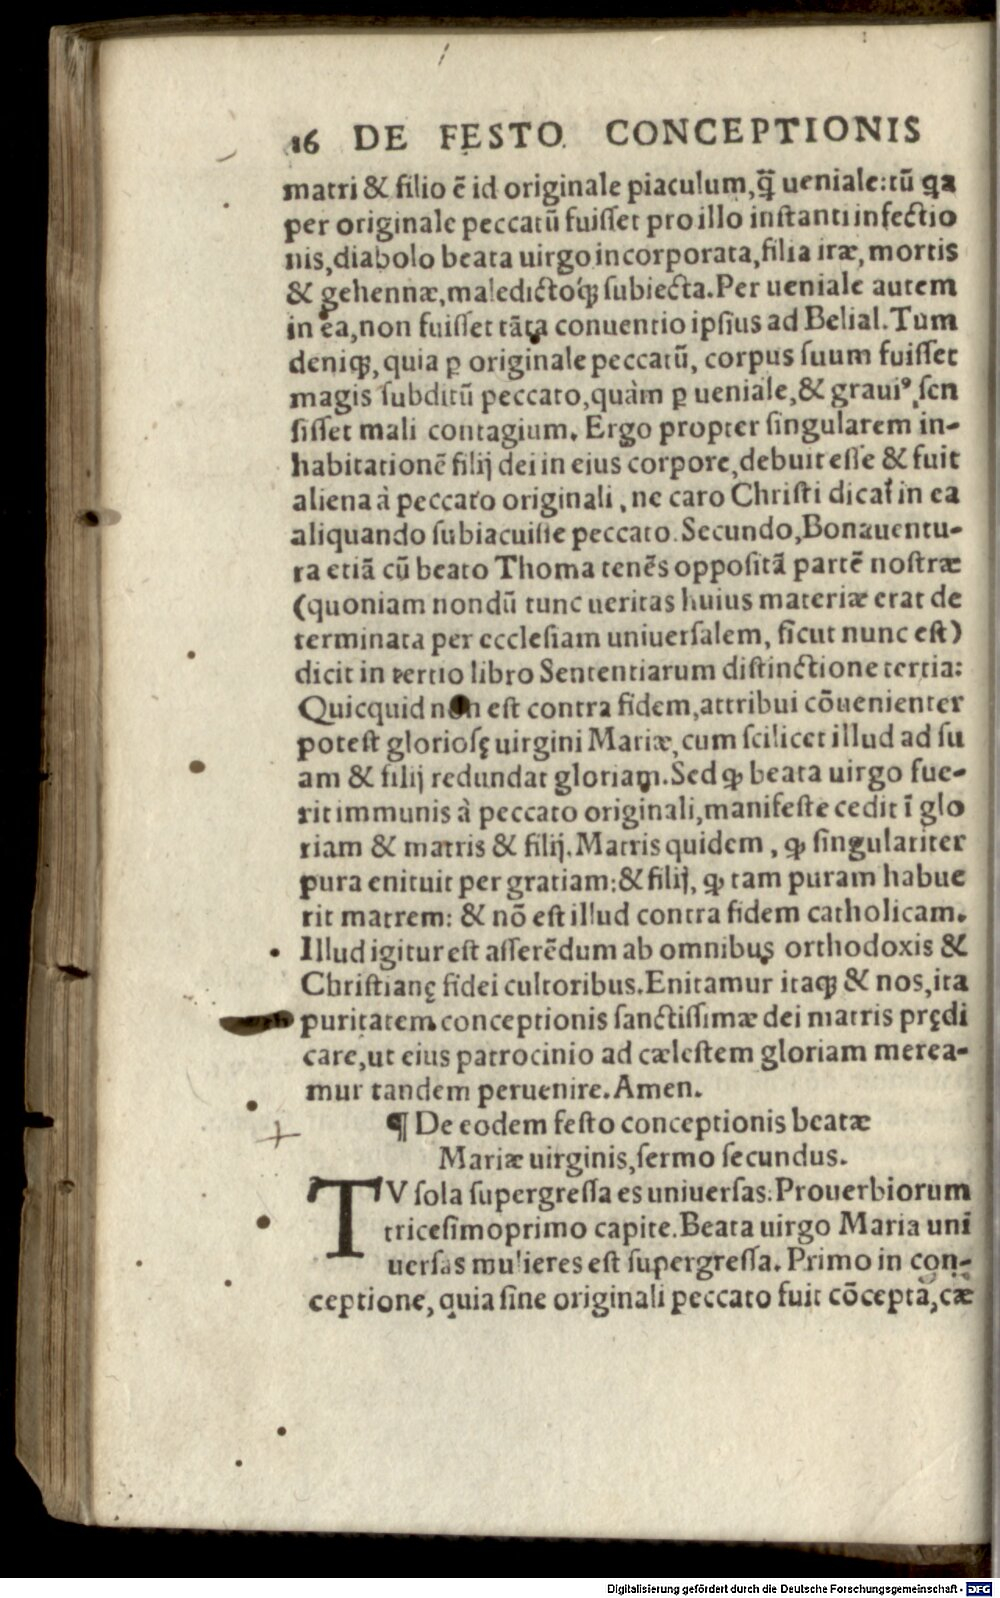 16 DE FESTO CONCEPTIONIS
matri & filio ē id originale piaculum, q̃ ueniale: tū qa
per originale peccatū fuisset pro illo instanti infectio
nis, diabolo beata uirgo incorporata, filia iræ, mortis
& gehennæ, maledictoq́ꝫ subiecta. Per ueniale autem
in ea, non fuisset tāta conuentio ipsius ad Belial. Tum
deniqꝫ, quia ꝑ originale peccatū, corpus suum fuisset
magis subditū peccato, quàm ꝑ ueniale, & graui⁹ sen
sisset mali contagium. Ergo propter singularem in-
habitationē filij dei in eius corpore, debuit esse & fuit
aliena à peccato originali, ne caro Christi dicat̃ in ea
aliquando subiacuisse peccato. Secundo, Bonauentu-
ra etiā cū beato Thoma tenēs oppositā partē nostræ
(quoniam nondū tunc ueritas huius materiæ erat de
terminata per ecclesiam uniuersalem, sicut nunc est)
dicit in tertio libro Sententiarum distinctione tertia:
Quicquid non est contra fidem, attribui cōuenienter
potest gloriosę uirgini Mariæ, cum scilicet illud ad su
am & filij redundat gloriam. Sed ꝙ beata uirgo fue-
rit immunis à peccato originali, manifeste cedit ī glo
riam & matris & filij. Matris quidem, ꝙ singulariter
pura enituit per gratiam: & filij, ꝙ tam puram habue
rit matrem: & nō est illud contra fidem catholicam.
Illud igitur est asserēdum ab omnibus orthodoxis &
Christianę fidei cultoribus. Enitamur itaqꝫ & nos, ita
puritatem conceptionis sanctissimæ dei matris prędi
care, ut eius patrocinio ad cælestem gloriam merea-
mur tandem peruenire. Amen.
¶ De eodem festo conceptionis beatæ
Mariæ uirginis, sermo secundus.
TV sola supergressa es uniuersas: Prouerbiorum
tricesimoprimo capite. Beata uirgo Maria uni
uersas mulieres est supergressa. Primo in con-
ceptione, quia sine originali peccato fuit cōcepta, cæ
Digitalisierung gefördert durch die Deutsche Forschungsgemeinschaft - DFG